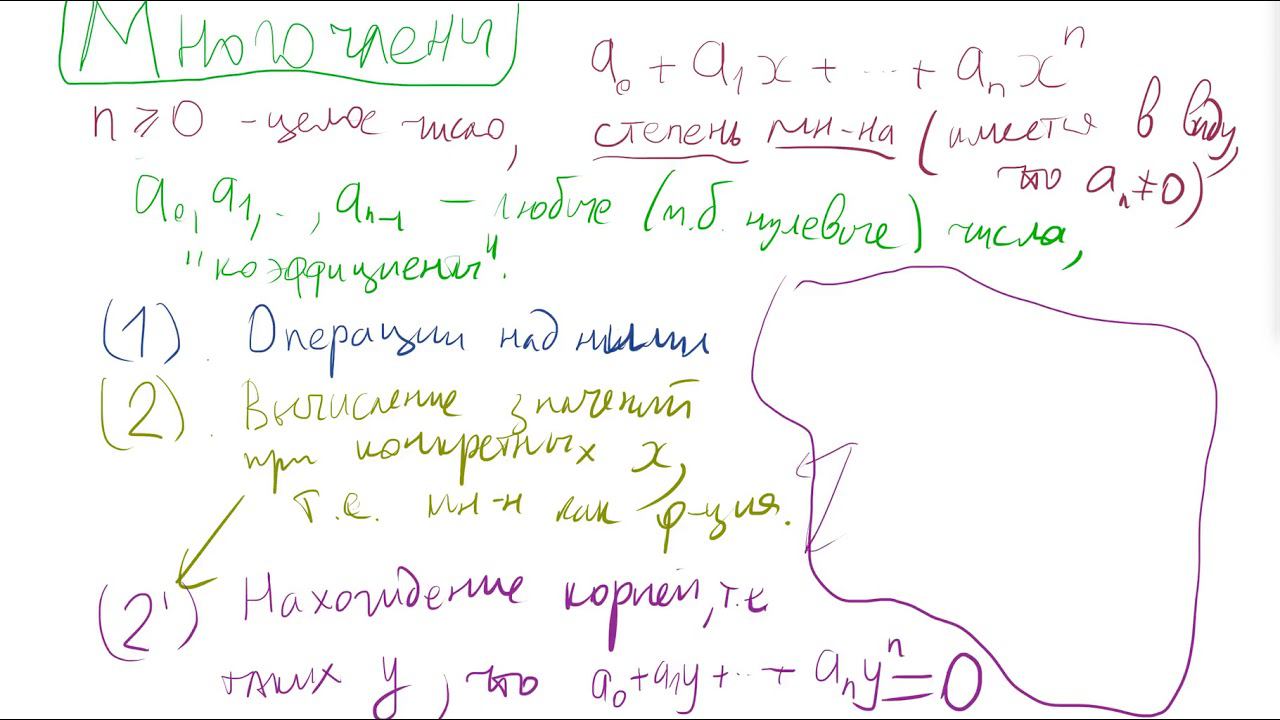 Многочлены
a₀ + a₁x + ... + aₙxⁿ
n ⩾ 0 - целое число, степень мн-на (имеется в виду,
что aₙ ≠ 0),
a₀, a₁, .., aₙ₋₁ – любые (м.б. нулевые) числа,
"коэффициенты".
(1). Операции над ними
(2). Вычисление значений
при конкретных x,
т.е. мн-н как ф-ция.
(2') Нахождение корней, т.е
таких y, что a₀+a₁y+...+aₙyⁿ=0